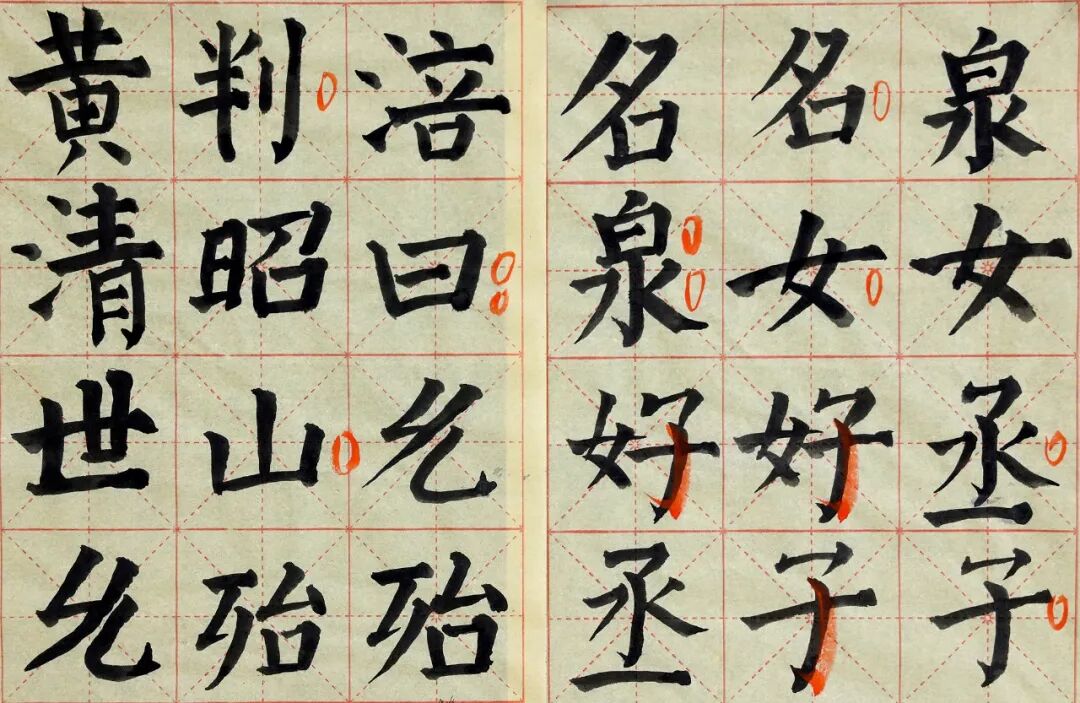 黄判涪
清昭曰
世山
殆殆
名名泉
泉女女
好好丞
丞子子